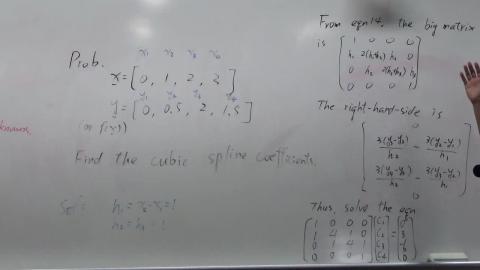 x₁ x₂ x₃ x₄
Prob. x = [0, 1, 2, 3]
y₁ y₂ y₃ y₄
y = [0, 0.5, 2, 1.5]
(or f(x))
Find the cubic spline coefficients.
Sol: h₁ = x₂-x₁ = 1
h₂ = h₃ = 1
From eqn 14, the big matrix
is [1 0 0 0
h₁ 2(h₁+h₂) h₂ 0
0 h₂ 2(h₂+h₃) h₃
0 0 0 1]
The right-hand-side is
[0
3(y₃-y₂)/h₂ - 3(y₂-y₁)/h₁
3(y₄-y₃)/h₃ - 3(y₃-y₂)/h₂
0]
Thus, solve the eqn
[1 0 0 0] [C₁] [0]
[1 4 1 0] [C₂] = [3]
[0 1 4 1] [C₃] [-6]
[0 0 0 1] [C₄] [0]